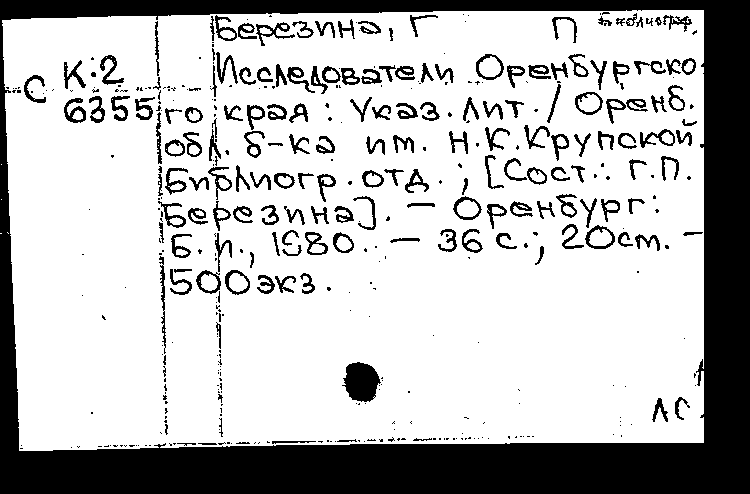 Березина, Г П Библиограф.
С К·2 Исследователи Оренбургско-
6355 го края: Указ. лит. / Оренб.
обл. б-ка им. Н.К.Крупской.
Библиогр. отд. ; [Сост.: Г.П.
Березина]. – Оренбург:
Б. и., 1980. – 36 с.; 20 см. –
500 экз.
ЛС